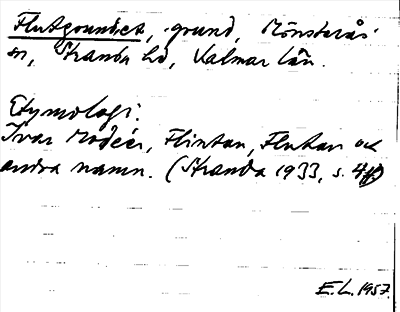 Flutgrundet, grund, Mönsterås
sn, Stranda hd, Kalmar län.
Etymologi:
Ivar Modéer, Flintan, Flutan och
andra namn. (Stranda 1933, s. 4ff)
E. L. 1957.